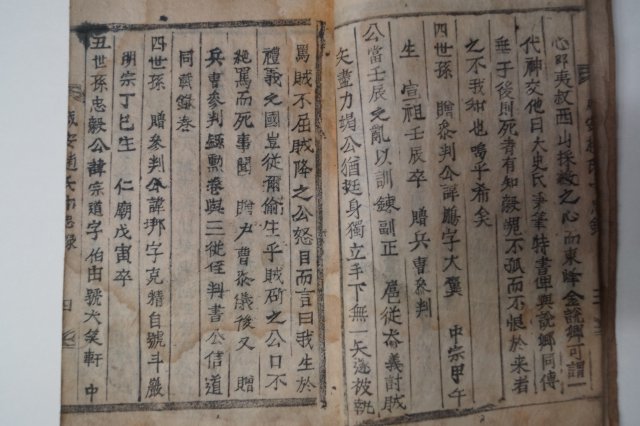 心卽夷叔西山採薇之心而東峰金說卿可謂一
代神交他日大史氏秉筆特書俾與說卿同傳
垂于後則死者有知毅魄不孤而不恨於來者
之不我知也嗚乎希矣
四世孫 贈參判公諱鵬字大翼 中宗甲午
生 宣祖壬辰卒 贈兵曹參判
公當壬辰之亂以訓鍊副正 扈從奮義討賊
矢盡力竭公猶挺身獨立手下無一矢遂被執
罵賊不屈賊降之公怒目而言曰我生於
禮義之國豈從爾偷生乎賊斫之公口不
絶罵而死事聞 贈戶曹參議後又 贈
兵曹參判錄勳卷與三從侄判書公信道
同載錄卷
四世孫 贈參判公諱邦字克精自號斗巖
明宗丁巳生 仁廟戊寅卒
五世孫忠毅公諱宗道字伯由號大笑軒 中
咸安趙氏
四